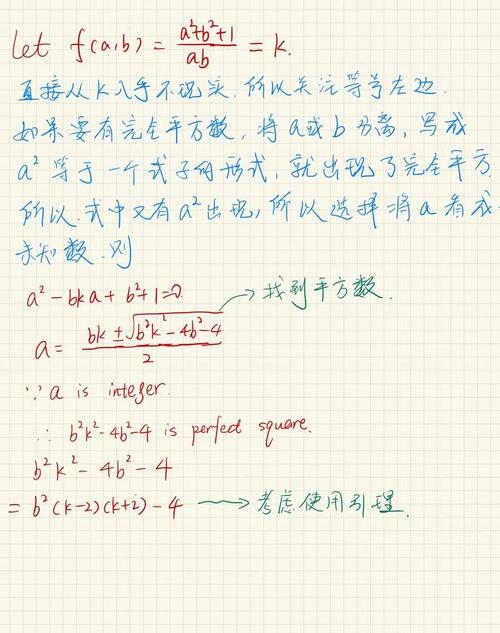 let f(a,b) = \frac{a²+b²+1}{ab} = k.
直接从k入手不现实.所以关注等号左边.
如果要有完全平方数,将a或b分离,写成
a²等于一个式子的形式,就出现了完全平方.
所以.式中又有a²出现,所以选择将a看成
未知数.则
a² - bka + b²+1=0.
a = \frac{bk ± √(b²k²-4b²-4)}{2} → 找到平方数.
∵ a is integer.
∴ b²k²-4b²-4 is perfect square.
b²k² - 4b² - 4
= b²(k-2)(k+2) - 4 → 考虑使用引理.